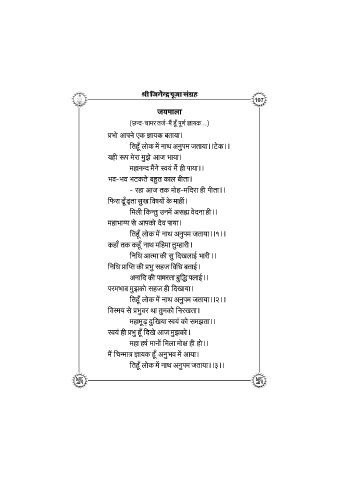 श्री जिनेन्द्र पूजा संग्रह
197
जयमाला
(छन्द-चामर तर्ज-मैं हूँ पूर्ण ज्ञायक...)
प्रभो आपने एक ज्ञायक बताया।
तिहूँ लोक में नाथ अनुपम जताया।।टेक।।
यही रूप मेरा मुझे आज भाया।
महानन्द मैंने स्वयं में ही पाया।।
भव-भव भटकते बहुत काल बीता।
- रहा आज तक मोह-मदिरा ही पीता।।
फिरा ढूँढ़ता सुख विषयों के माहीं।
मिली किन्तु उनमें असह्य वेदना ही।।
महाभाग्य से आपको देव पाया।
तिहूँ लोक में नाथ अनुपम जताया।।१।।
कहाँ तक कहूँ नाथ महिमा तुम्हारी।
निधि आत्मा की सु दिखलाई भारी।।
निधि प्राप्ति की प्रभु सहज विधि बताई।
अनादि की पामरता बुद्धि पलाई।।
परमभाव मुझको सहज ही दिखाया।
तिहूँ लोक में नाथ अनुपम जताया।।२।।
विस्मय से प्रभुवर था तुमको निरखता।
महामूढ़ दुखिया स्वयं को समझता।।
स्वयं ही प्रभु हूँ दिखे आज मुझको।
महा हर्ष मानों मिला मोक्ष ही हो।।
मैं चिन्मात्र ज्ञायक हूँ अनुभव में आया।
तिहूँ लोक में नाथ अनुपम जताया।।३।।